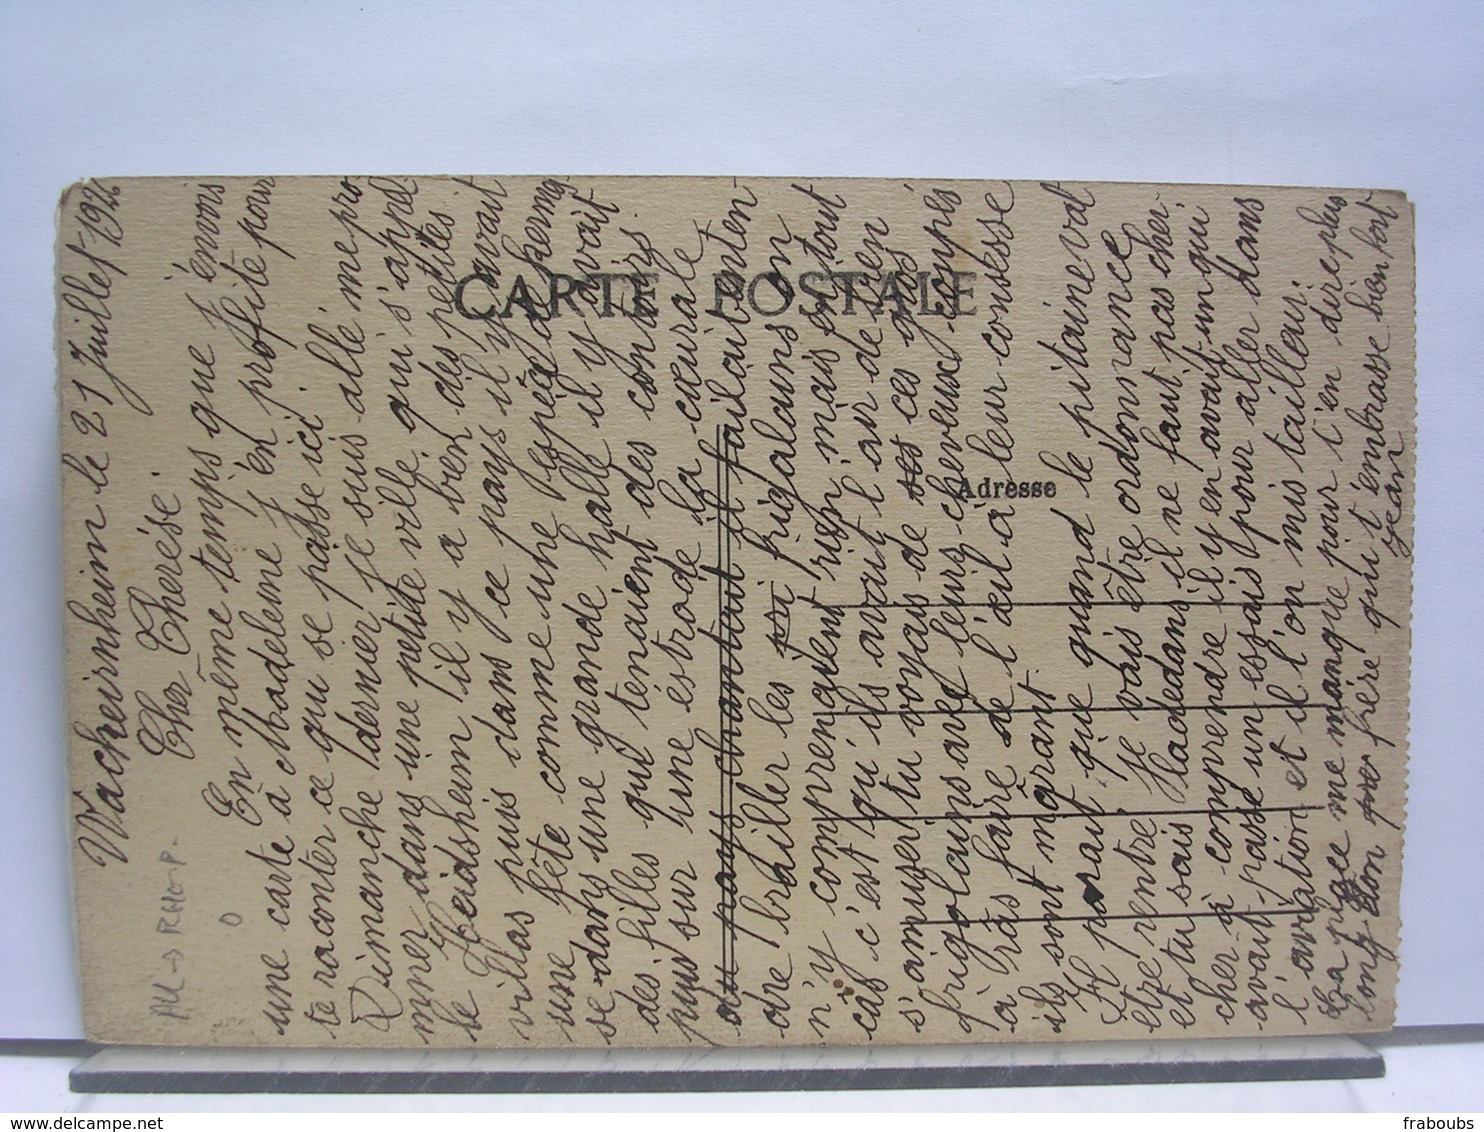 Wacheirnheim le 21 Juillet 192
Cher Therése.
En même temps que j'envois
une carte à Madeleine j'én profite pour
te raconter ce qui se passe ici.
Dimanche dernier je suis allé me pro-
mner dans une petite ville qui s'appel
le Heidsheim il y a bien des petites
villas puis dans ce pays il y avait
une fête comme une espéce de kermes-
se dans une grande halle il y avait
des filles qui tenaient des
puis sur une estrade la
au pays chantait il failait enten-
dre brailler les frigolauns on
n'y comprenaient rien mais surtout
cas c'est qu'ils avait l'air de rien
s'amuser tu voyais de ces gros
frigolauns avec leurs cheveux coupés
à ras faire de l'œil à leur
ils sont migrant.
Il parait que quand le pitaine vat
etre rentré Je vais être ordonnance
et tu sais Hadedans il ne faut pas cher-
cher à comprendre il y en avait un qui
avait passé un essais pour aller dans
l'aviation et il l'on mis tailleur.
La place me manque pour t'en dire plus
long ton frére qui t'embrasse bien fort
Jean
CARTE POSTALE
Adresse
fraboubs